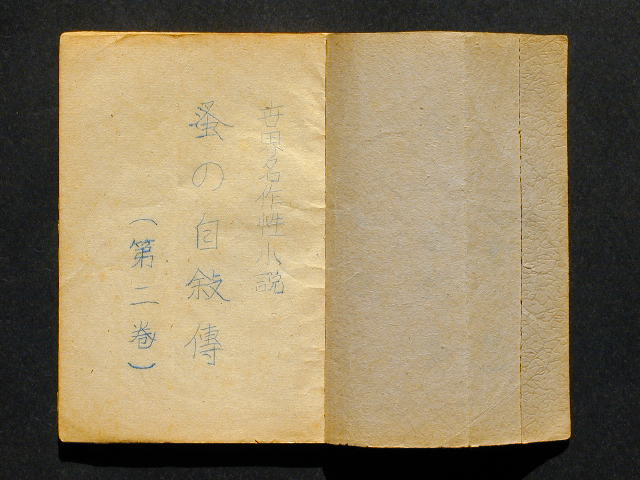 世界名作性小説
蚤の自敍傳
(第二巻)